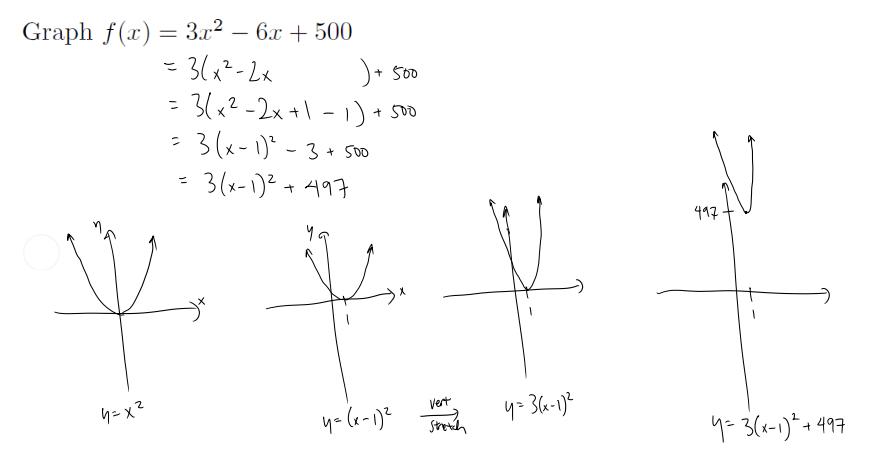 Graph f(x) = 3x² − 6x + 500
= 3(x² - 2x        ) + 500
= 3(x² - 2x + 1 - 1) + 500
= 3(x - 1)² - 3 + 500
= 3(x-1)² + 497
497
y
y
x
x
1
1
1
y = x²
y = (x-1)²
vert
stretch
y = 3(x-1)²
y = 3(x-1)² + 497